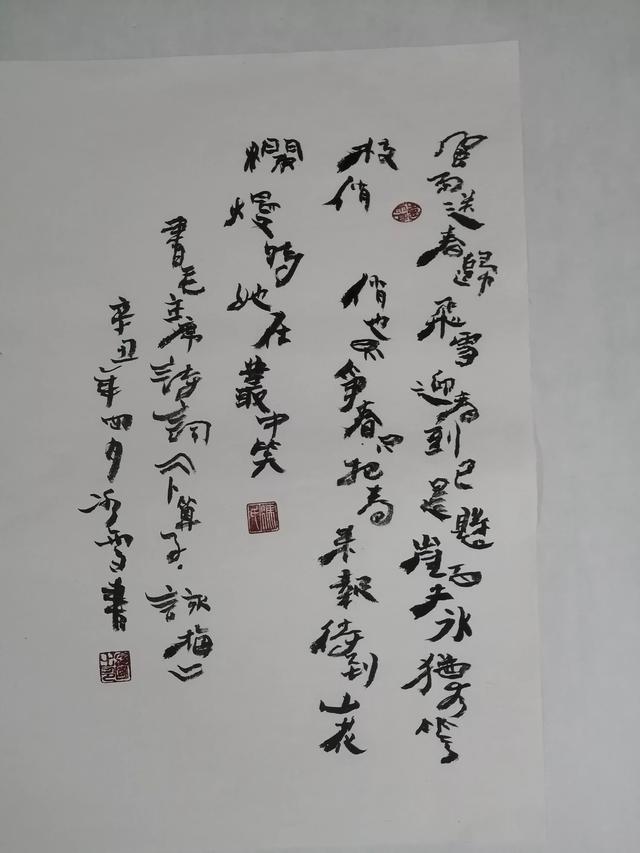 風雨送春歸飛雪迎春到已是懸崖百丈冰猶有花
枝俏 俏也不爭春只把春來報待到山花
爛熳時她在叢中笑
書毛主席詩詞《卜算子·詠梅》
辛丑年四月雪書